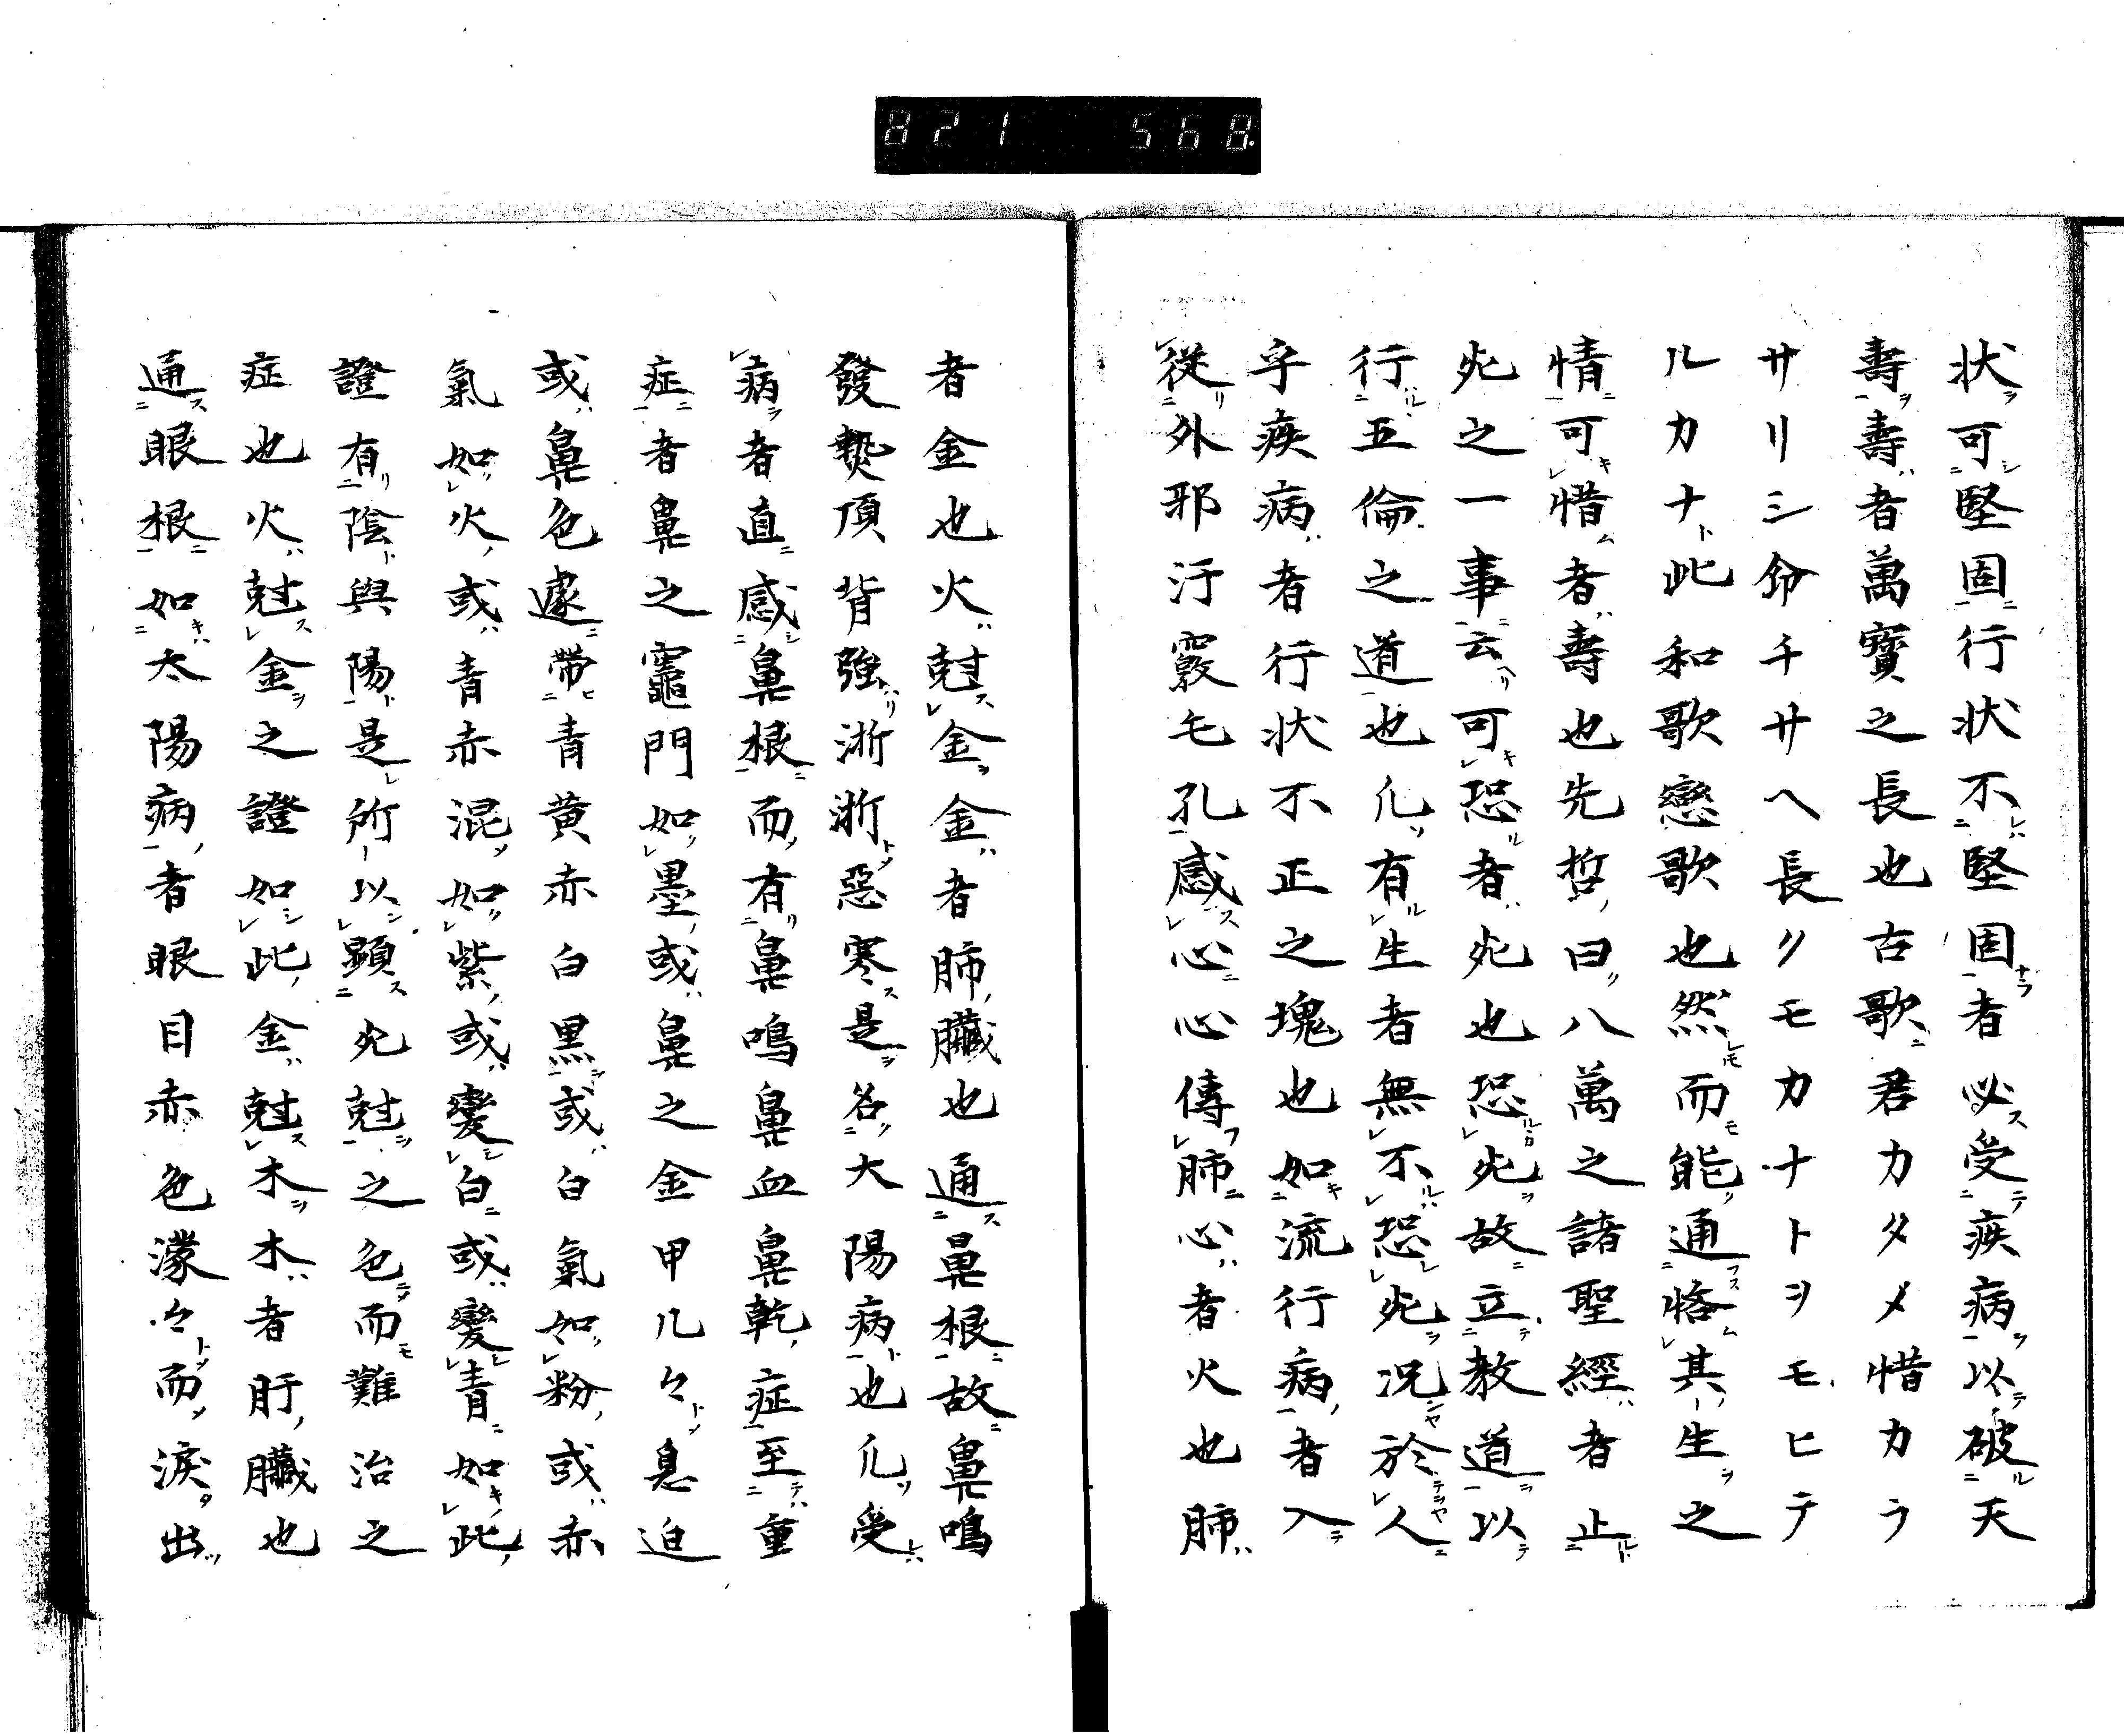 821 568.
状可堅固行状不堅固者必受疾病以破天
壽壽者萬寳之長也古歌君カタメ惜カラ
サリシ命チサヘ長クモカナトヲモヒテ
ルカナ此和歌戀歌也然而能通恪其生之
情可惜者壽也先哲曰八萬之諸聖經者止
死之一事云可恐者死也恐死故立教道以
行五倫之道也凡有生者無不恐死况於人
乎疾病者行状不正之塊也如流行病者入
従外邪汙竅毛孔感心心傳肺心者火也肺
者金也火尅金金者肺臓也通鼻根故鼻鳴
發熱頂背強淅淅惡寒是名大陽病也凡受
病者直感鼻根而有鼻鳴鼻血鼻乾症至重
症者鼻之竈門如墨或鼻之金甲几々息迫
或鼻色遽帶青黄赤白黒或白氣如粉或赤
氣如火或青赤混如紫或變白或變青如此
證有陰與陽是所以顕死尅之色而難治之
症也火尅金之證如此金尅木木者肝臓也
通眼根如太陽病者眼目赤色濛々而涙出